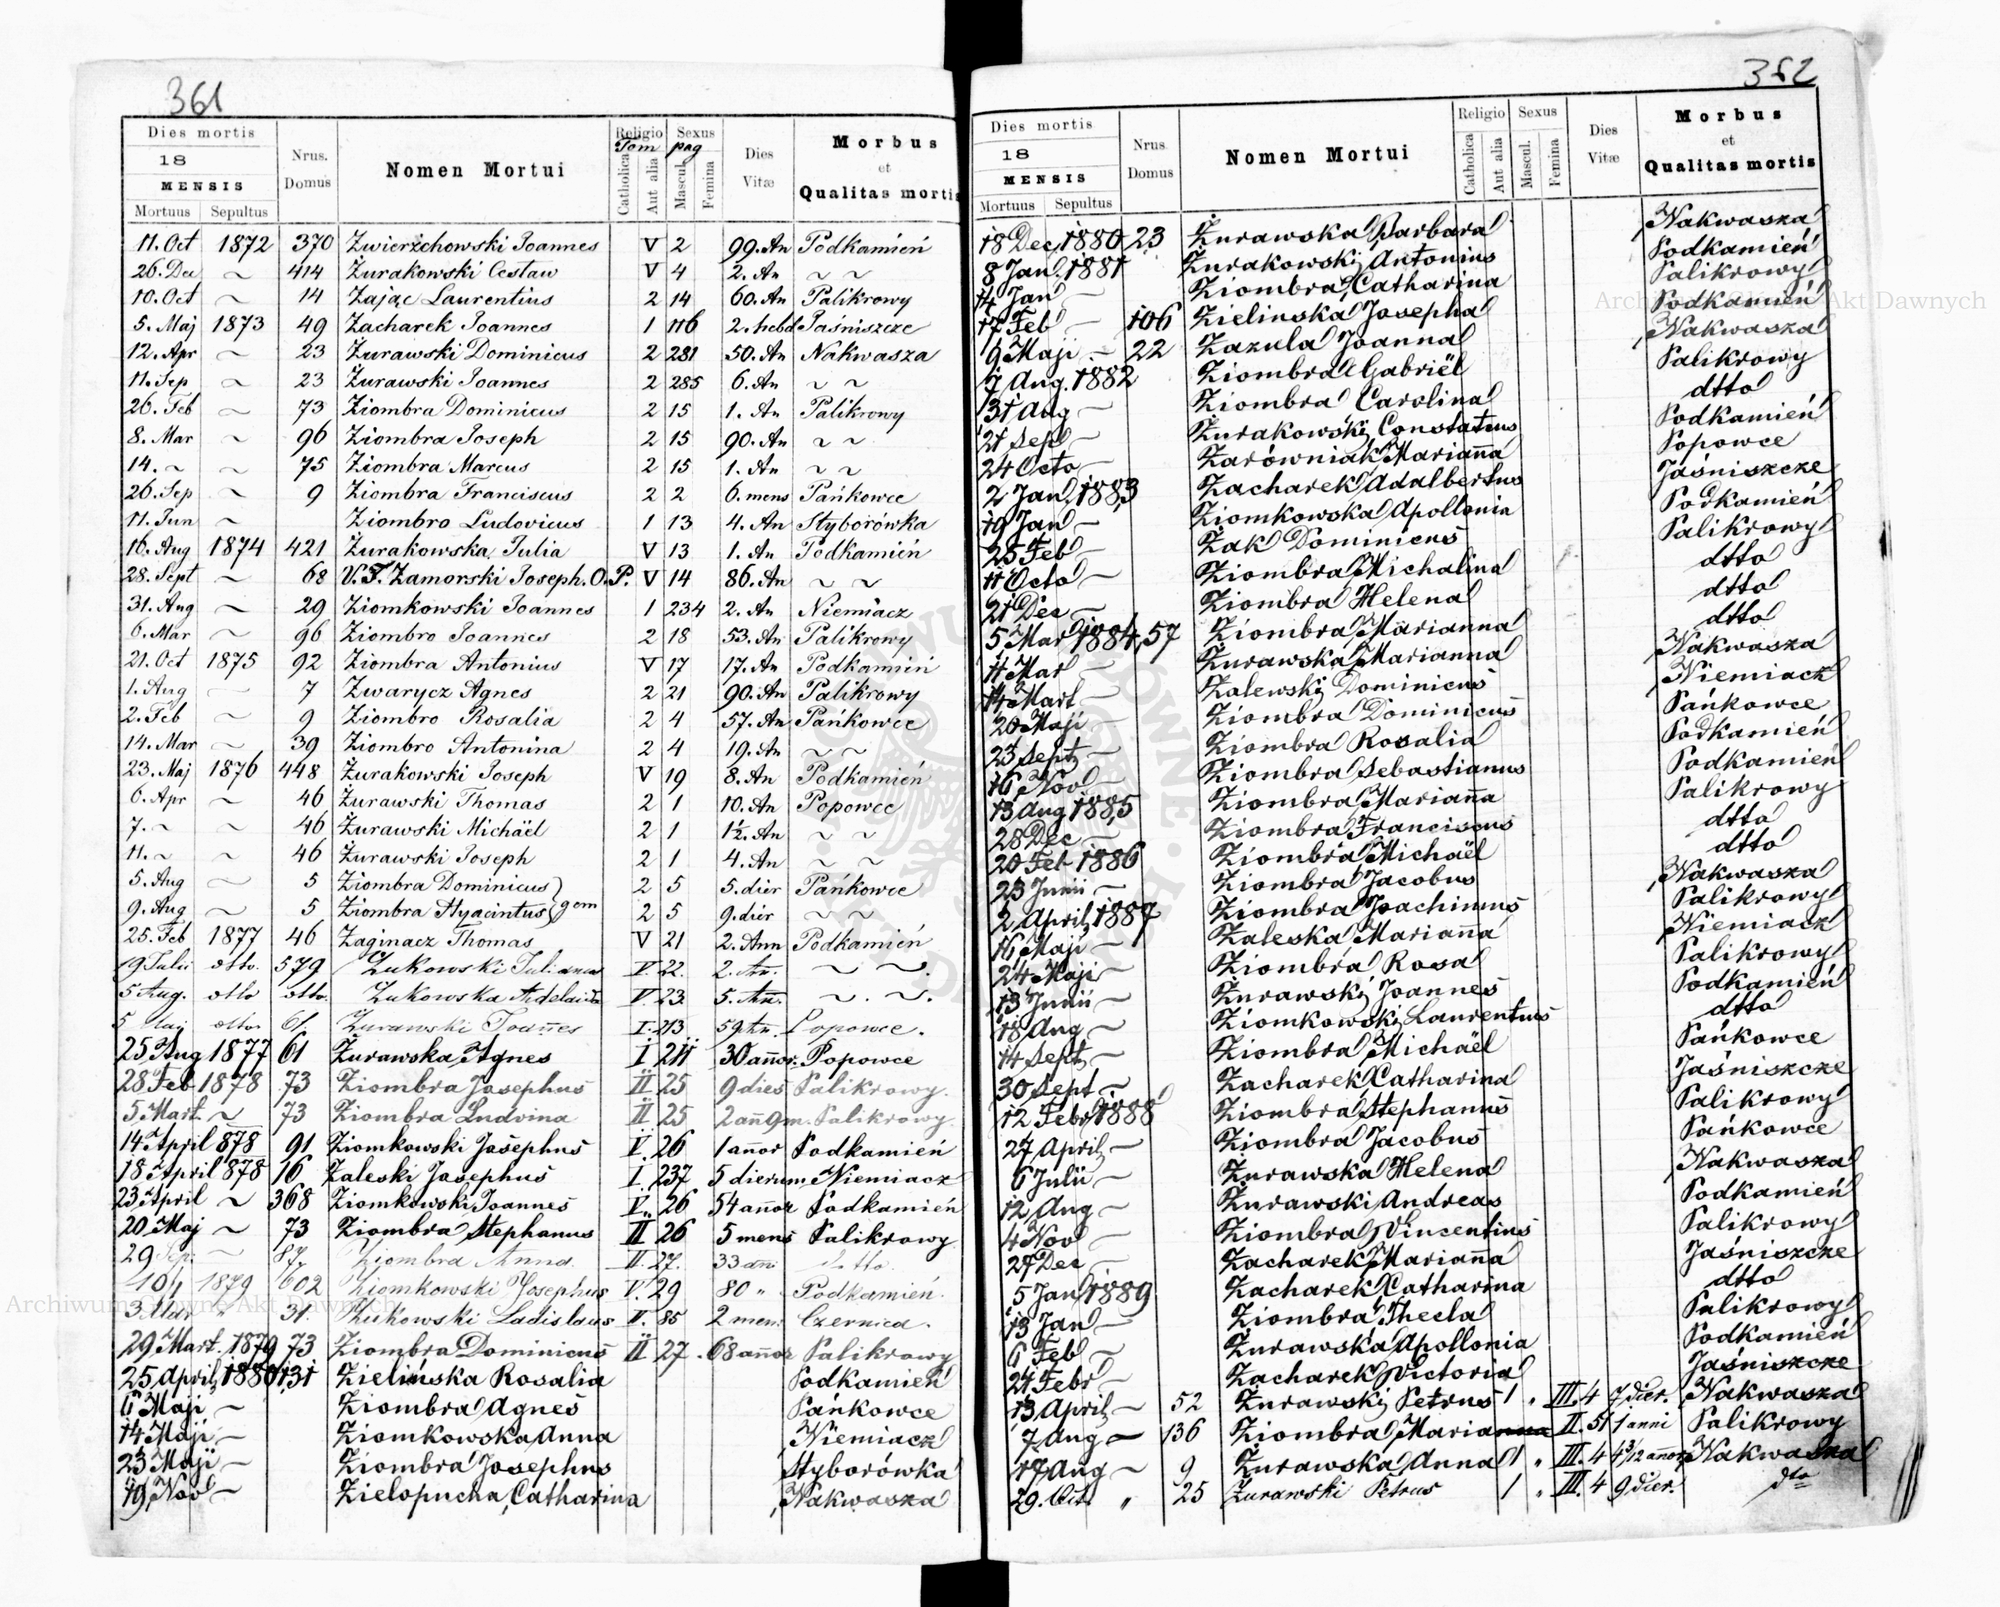 361
Dies mortis Nrus. Domus Nomen Mortui Religio Sexus Dies Vitæ Morbus et Qualitas mortis
Tom pag
18
MENSIS
Mortuus Sepultus Catholica Aut alia Mascul. Femina
11. Oct 1872 370 Zwierzchowski Joannes V 2 99. An Podkamień
26. Dec ~ 414 Żurakowski Cestaw V 4 2. An ~ ~
10. Oct ~ 14 Zając Laurentius 2 14 60. An Palikrowy
5. Maj 1873 49 Zacharek Joannes 1 116 2. hebd Jaśniszcze
12. Apr ~ 23 Żurawski Dominicus 2 281 50. An Nakwasza
11. Sep ~ 23 Żurawski Joannes 2 285 6. An ~ ~
26. Feb ~ 73 Ziombra Dominicus 2 15 1. An Palikrowy
8. Mar ~ 96 Ziombra Joseph 2 15 90. An ~ ~
14. ~ ~ 75 Ziombra Marcus 2 15 1. An ~ ~
26. Sep ~ 9 Ziombra Franciscus 2 2 6. mens Pańkowce
11. Jun ~ Ziombro Ludovicus 1 13 4. An Styborówka
16. Aug 1874 421 Żurakowska Julia V 13 1. An Podkamień
28. Sept ~ 68 V. F. Zamorski Joseph. O. P. V 14 86. An ~ ~
31. Aug ~ 29 Ziomkowski Joannes 1 234 2. An Niemiacz
6. Mar ~ 96 Ziombro Joannes 2 18 53. An Palikrowy
21. Oct 1875 92 Ziombra Antonius V 17 17. An Podkamień
1. Aug ~ 7 Zwarycz Agnes 2 21 90. An Palikrowy
2. Feb ~ 9 Ziombro Rosalia 2 4 57. An Pańkowce
14. Mar ~ 39 Ziombro Antonina 2 4 19. An ~ ~
23. Maj 1876 448 Żurakowski Joseph V 19 8. An Podkamień
6. Apr ~ 46 Żurawski Thomas 2 1 10. An Popowce
7. ~ ~ 46 Żurawski Michäel 2 1 1½. An ~ ~
11. ~ ~ 46 Żurawski Joseph 2 1 4. An ~ ~
5. Aug ~ 5 Ziombra Dominicus } gem 2 5 5. dier Pańkowce
9. Aug ~ 5 Ziombra Hyacintus 2 5 9. dier ~ ~
25. Feb 1877 46 Zaginacz Thomas V 21 2. Ann Podkamień
19 Julii dtto. 579 Żukowski Julianus V. 22. 2. An. ~ ~.
5 Aug. dtto dtto. Żukowska Adelaida V. 23. 5. An. ~ . ~.
5 Maj dtto 61. Żurawski Joannes I. 213 59 An. Popowce.
25 Aug 1877 61 Żurawska Agnes I 211 30 annor. Popowce
28 Feb 1878 73 Ziombra Josephus II 25 9 dies Palikrowy.
5 Mart. ~ 73 Ziombra Ludvina II 25 2 an 9 m. Palikrowy.
14 April 878 91 Ziomkowski Josephus V. 26 1 annor Podkamień
18 April 878 16 Zaleski Josephus I. 237 5 dierum Niemiacz
23 April ~ 368 Ziomkowski Joannes V. 26 54 annor Podkamień
20 Maj ~ 73 Ziombra Stephanus II 26 5 mens Palikrowy
29 Sep. ~ 87. Ziombra Anna. II. 27. 33 an. dtto.
10/1 1879 602 Ziomkowski Josephus V. 29 80 " Podkamień.
3 Mar " 31. Żukowski Ladislaus II. 85 2 men. Czernica.
29 Mart. 1879 73 Ziombra Dominicus II 27. 68 annor Palikrowy
25 April 1880 131 Zielińska Rosalia Podkamień
6 Maji — Ziombra Agnes Pańkowce
14 Maji — Ziomkowska Anna Niemiacz
23 Maji — Ziombra Josephus Styborówka
19 Nov — Zielopucha Catharina Nakwasza
362
Dies mortis Nrus Domus Nomen Mortui Religio Sexus Dies Vitæ Morbus et Qualitas mortis
18
MENSIS
Mortuus Sepultus Catholica Aut alia Mascul. Femina
18 Dec 1880 23 Żurawska Barbara Nakwasza
8 Jan. 1881 Żurakowski Antonius Podkamień
14 Jan — Ziombra Catharina Palikrowy
17 Feb — 106 Zielinska Josepha Podkamień
9 Maji — 22 Zazula Joanna Nakwasza
7 Aug. 1882 Ziombra Gabriël Palikrowy
31 Aug — Ziombra Carolina dtto
21 Sept — Żurakowski Constatius Podkamień
24 Octo — Zarówniak Marianna Popowce
2 Jan. 1883 Zacharek Adalbertus Jaśniszcze
19 Jan — Ziomkowska Apollonia Podkamień
25 Feb — Żak Dominicus Palikrowy
11 Octo — Ziombra Michalina dtto
21 Dec — Ziombra Helena dtto
5 Mar 1884 57 Ziombra Marianna dtto
11 Mar — Żurawska Marianna Nakwasza
14 Mart — Zalewski Dominicus Niemiacz
20 Maji — Ziombra Dominicus Pańkowce
23 Sept — Ziombra Rosalia Podkamień
16 Nov — Ziombra Sebastianus Podkamień
13 Aug 1885 Ziombra Marianna Palikrowy
28 Dec — Ziombra Franciscus dtto
20 Feb 1886 Ziombra Michaël dtto
23 Junii — Ziombra Jacobus Nakwasza
2 April 1887 Ziombra Joachimus Palikrowy
16 Maji — Zaleska Marianna Niemiacz
24 Maji — Ziombra Rosa Palikrowy
13 Junii — Żurawski Joannes Podkamień
18 Aug — Ziomkowski Laurentius dtto
14 Sept — Ziombra Michaël Pańkowce
30 Sept — Zacharek Catharina Jaśniszcze
12 Febr 1888 Ziombra Stephanus Palikrowy
27 April — Ziombra Jacobus Pańkowce
6 Julii — Żurawska Helena Nakwasza
12 Aug — Żurawski Andreas Podkamień
4 Nov — Ziombra Vincentius Palikrowy
27 Dec — Zacharek Marianna Jaśniszcze
5 Jan 1889 Zacharek Catharina dtto
13 Jan — Ziombra Thecla Palikrowy
6 Feb — Żurawska Apollonia Podkamień
24 Febr — Zacharek Victoria Jaśniszcze
13 April — 52 Żurawski Petrus 1 " III. 4 7 dier. Nakwasza
7 Aug — 136 Ziombra Marianna II. 51 1 anni Palikrowy
17 Aug — 9 Żurawska Anna 1 " III. 4 4 3/12 annor Nakwasza
29. Oct. " 25 Żurawski Petrus 1 " III. 4 9 dier. dto
Archiwum Główne Akt Dawnych
Archiwum Główne Akt Dawnych